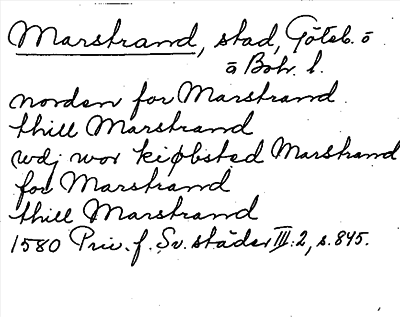 Marstrand, stad, Göteb. o
o Boh. l.
norden for Marstrand
thill Marstrand
wdj wor kiøbsted Marstrand
for Marstrand
thill Marstrand
1580 Priv. f. Sv. städer III: 2, s. 845.